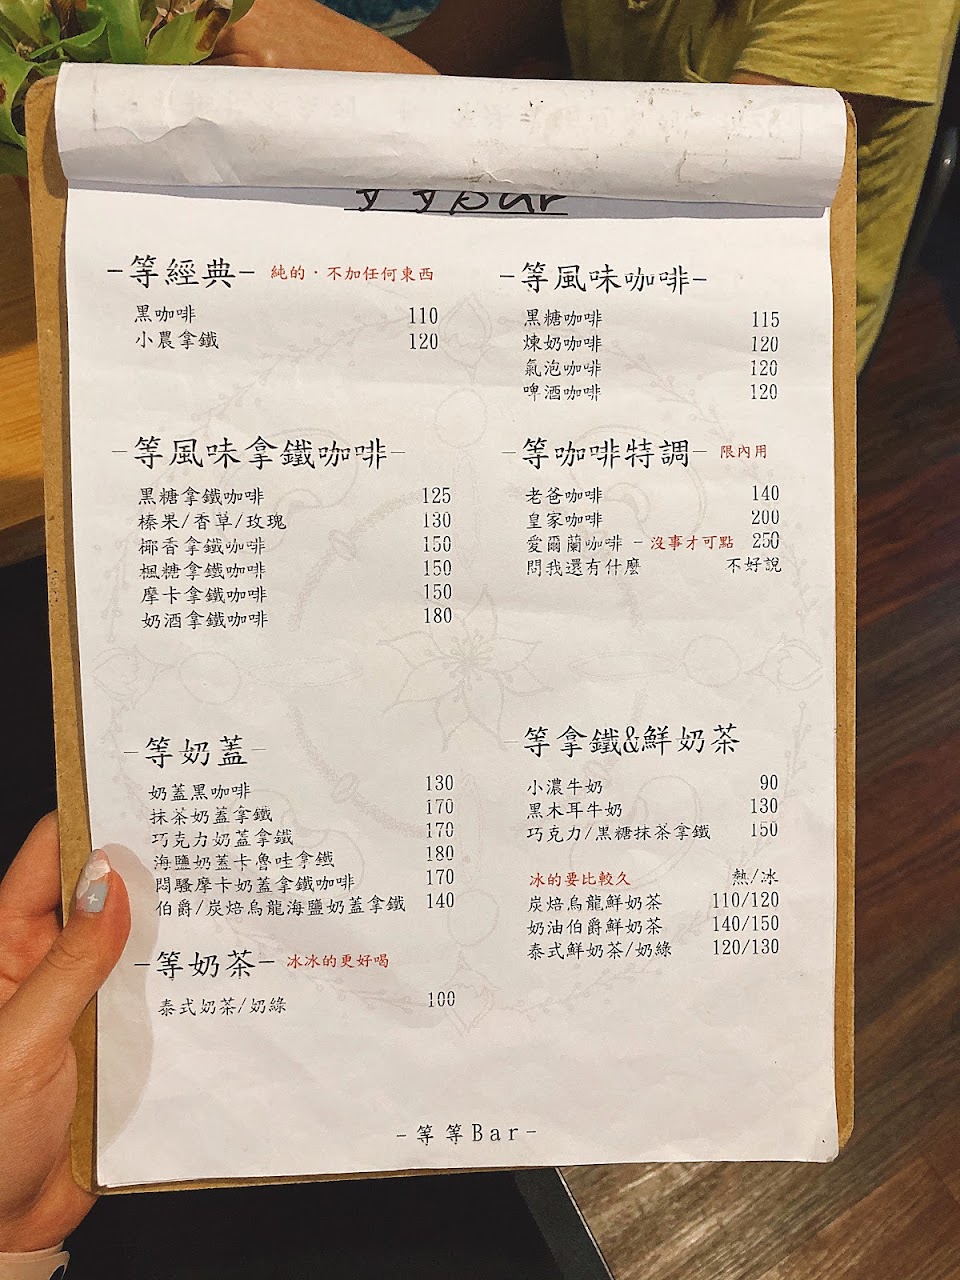 Bar
-等經典- 純的·不加任何東西
黑咖啡 110
小農拿鐵 120
-等風味咖啡-
黑糖咖啡 115
煉奶咖啡 120
氣泡咖啡 120
啤酒咖啡 120
-等風味拿鐵咖啡-
黑糖拿鐵咖啡 125
榛果/香草/玫瑰 130
椰香拿鐵咖啡 150
楓糖拿鐵咖啡 150
摩卡拿鐵咖啡 150
奶酒拿鐵咖啡 180
-等咖啡特調- 限內用
老爸咖啡 140
皇家咖啡 200
愛爾蘭咖啡 - 沒事才可點 250
問我還有什麼 不好說
-等奶蓋-
奶蓋黑咖啡 130
抹茶奶蓋拿鐵 170
巧克力奶蓋拿鐵 170
海鹽奶蓋卡魯哇拿鐵 180
悶騷摩卡奶蓋拿鐵咖啡 170
伯爵/炭焙烏龍海鹽奶蓋拿鐵 140
-等奶茶- 冰冰的更好喝
泰式奶茶/奶綠 100
-等拿鐵&鮮奶茶
小濃牛奶 90
黑木耳牛奶 130
巧克力/黑糖抹茶拿鐵 150
冰的要比較久 熱/冰
炭焙烏龍鮮奶茶 110/120
奶油伯爵鮮奶茶 140/150
泰式鮮奶茶/奶綠 120/130
-等等Bar-